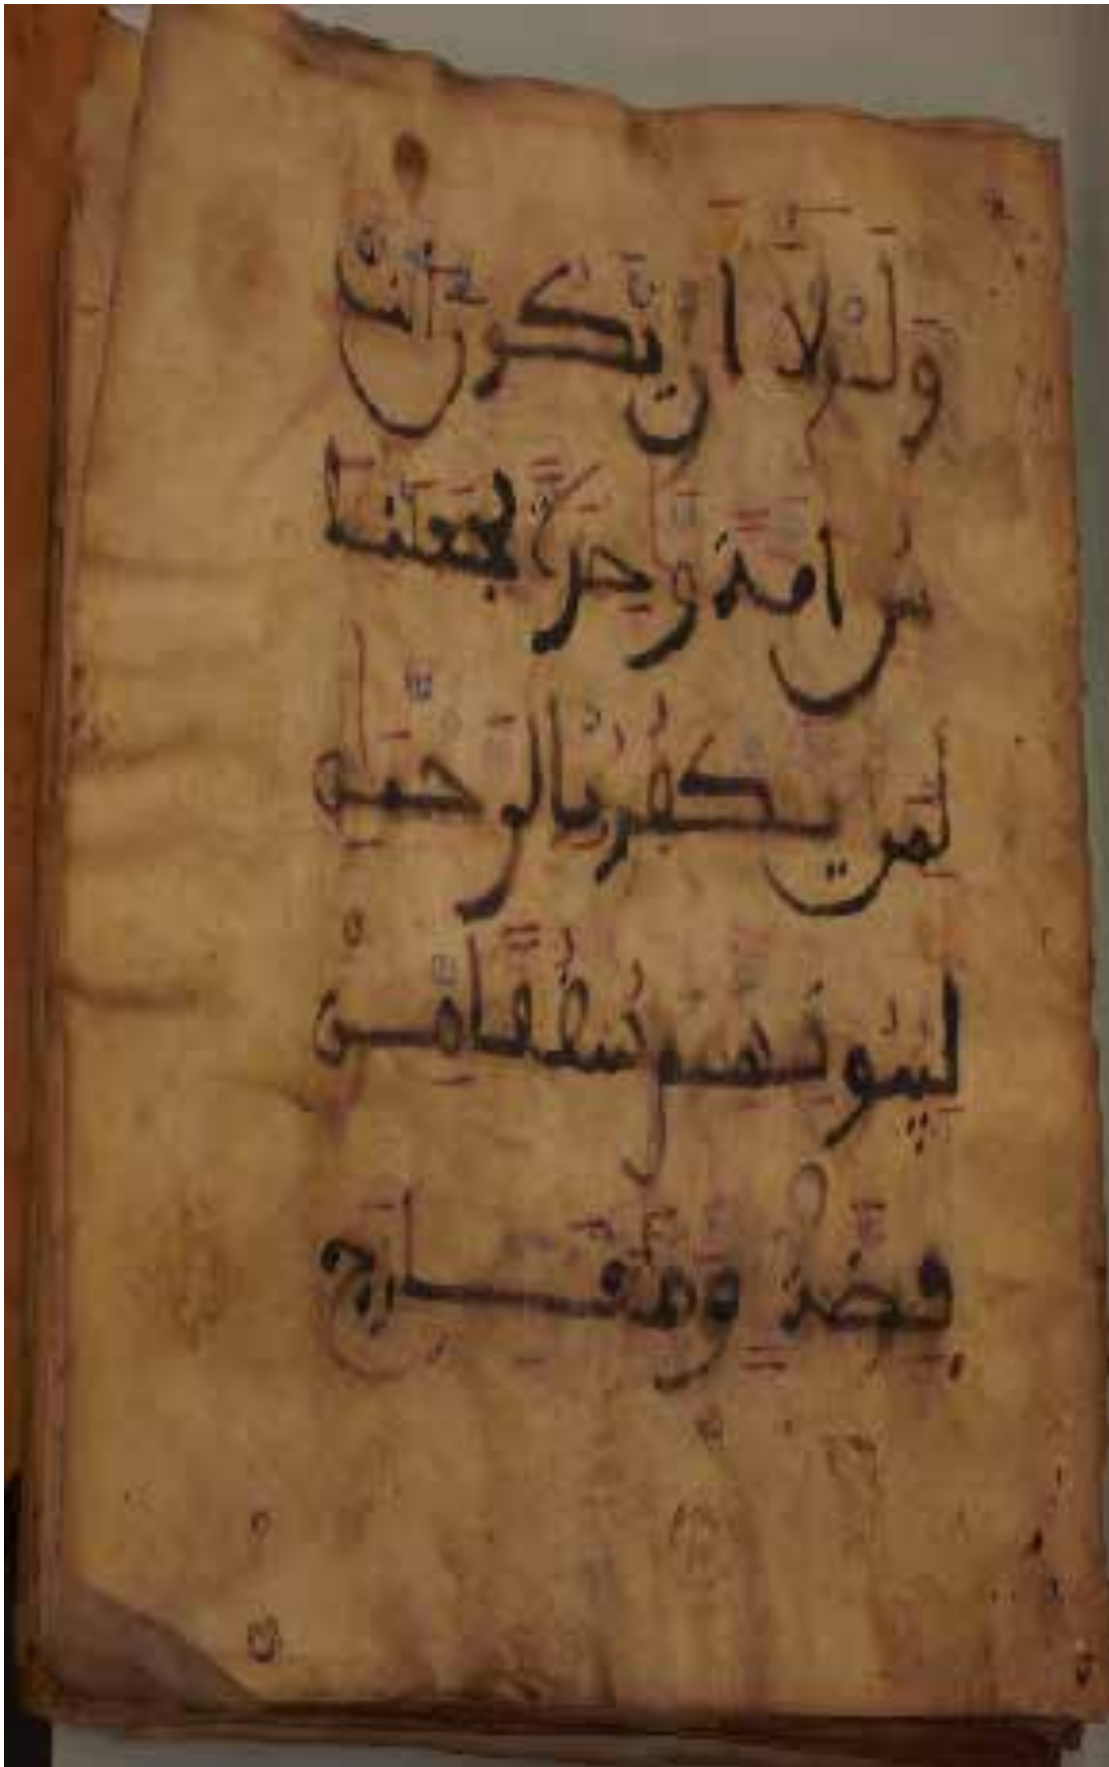 وَلَوْلَآ أَن يَّكُونَ ٱلنَّا
سُ أُمَّةً وَٰحِدَةً لَّجَعَلْنَا
لِمَن يَكْفُرُ بِالرَّحْمَٰنِ
لِبُيُوتِهِمْ سُقُفًا مِّن
فِضَّةٍ وَمَعَارِجَ